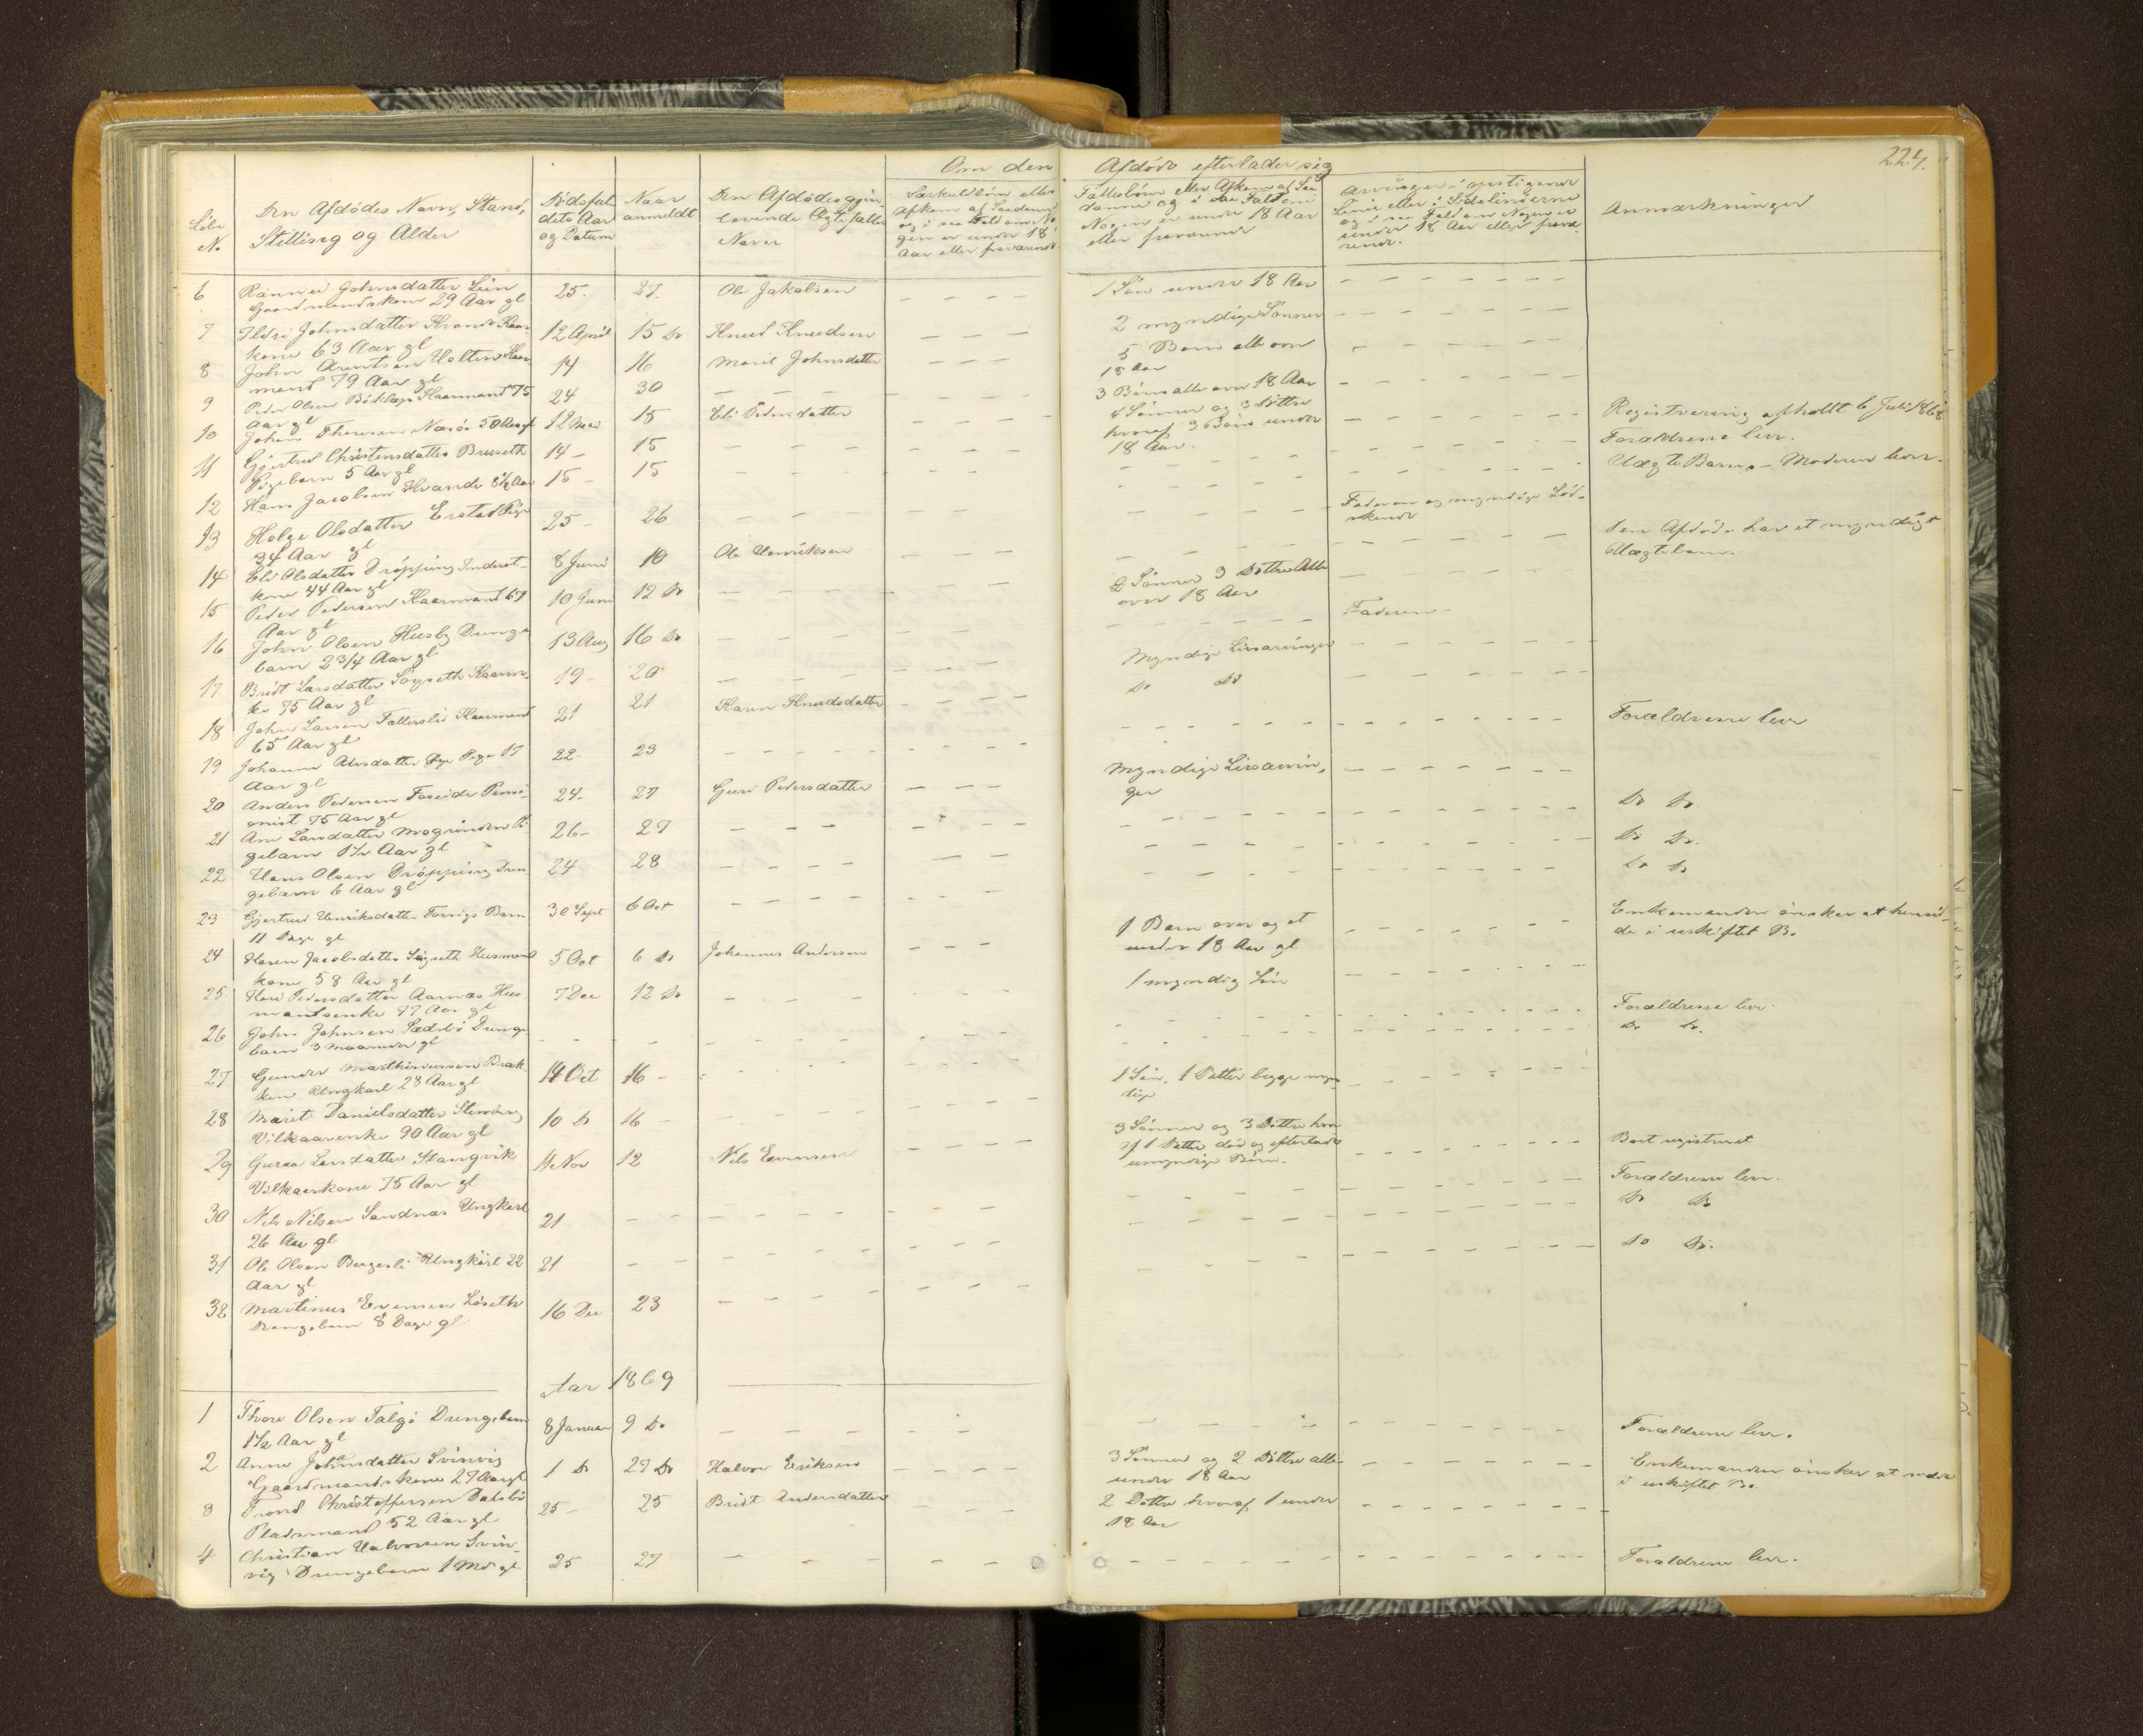 224.
Om den Afdöde efterlader sig
Löbe N.
Den Afdödes Navn, Stand,
Stilling og Alder
Dödsfal
dets Aar
og Datum
Naar
anmeldt
Den Afdödes gjen
levende Ægtefælles
Navn
Særkuldbörn eller
Afkom af Saadanne
og i saa Fald om No
gen er under 18
Aar eller fraværende
Fællesbörn eller Afkom af Saa
danne og i saa Fald om
Nogen er under 18 Aar
eller fraværende
Arvinger i opstigende
Linie eller i Sidelinierne
og i saa Fald om Nogen er
under 18 Aar eller fravæ
rende.
Anmærkninger
6 Johnsdatter 25. 27. Ole Jakobsen 1 Sön under 18 Aar
Gaardmandskone 29 Aar gl
7 Ildri Johnsdatter Kvande Kaar 12 April 15 Do Knud Knudsen 2 myndige Sönner
kone 63 Aar gl
8 John Arentsen Holten Kaar 14 16 Marit Johnsdatter 5 Börn alle over
mand 79 Aar gl 18 Aar
9 Peder Olsen Kaarmand 75 24 30 3 Börn alle over 18 Aar
Aar gl
10 Johan Nærö 50 Aar gl 12 Mai 15 Eli Pedersdatter 4 Sönner og 3 Döttre Registrering afholdt 6 Juli 1868
hvoraf 3 Börn under
18 Aar.
11 Gjertrud Christensdatter Bruseth 14 - 15 Forældrene lever.
Pigebarn 5 Aar gl
12 Hans Jacobsen Kvande 8½ Aar 15 - 15 Uægte Barn - Moderen lever.
13 Helge Olsdatter Erstad Pige 25 - 26 Faderen og myndige Söd-
34 Aar gl skende
Den Afdöde har et myndigt
Uægtebarn.
14 Eli Olsdatter Dröpping Inderst- 8 Juni 10 Ole Henriksen
kone 44 Aar gl
15 Peder Pedersen Kaarmand 67 10 Juni 12 Do 2 Sönner 3 Döttre Alle
Aar gl over 18 Aar
16 John Olsen Husby Drenge 13 Aug 16 Do Faderen -
barn 2 3/4 Aar gl
17 Bridt Larsdatter Sögseth Kaaren- 19 - 20 Myndige Livsarvinger
ke 75 Aar gl
18 John Larsen Fallerslie Kaarmand 21 21 Karen Knudsdatter Do Do
65 Aar gl
19 Johanne Pige 17 22 - 23 Forældrene lever
Aar gl
20 Anders Pedersen Foseide Pensi- 24 - 27 Guri Pedersdatter Myndige Livsarvin,
onist 75 Aar gl ger
21 Ane Larsdatter Mogrinden Pi 26 - 27 Do Do.
gebarn 1½ Aar gl
22 Hans Olsen Dröpping Dren 24 28 Do Do.
gebarn 6 Aar gl
23 Gjertrud Henriksdatter Barn 30 Sept 6 Oct Do Do
11 Dage gl
24 Karen Jacobsdatter Sögseth Husmand 5 Oct 6 Do Johannes Andersen 1 Barn over og et Enkemanden önsker at hensid-
kone 58 Aar gl under 18 Aar gl de i uskiftet Bo
25 Kari Pedersdatter Aarnæs Hus 7 Dec 12 Do 1 myndig Sön
mandsenke 77 Aar gl
26 John Johnsen Sædsbö Drenge Forældrene lever.
barn 3 Maaneder gl
27 Gunder Marthinussen Bræk 14 Oct 16 - Do Do.
ken Ungkarl 28 Aar gl
28 Marit Danielsdatter Stensberg 10 Do 16 - 1 Sön, 1 Datter begge myn
Vilkaarenke 90 Aar gl dige
29 Guroe Larsdatter Stangvik 11 Nov 12 Nils Evensen 3 Sönner og 3 Döttre hvor Boet registreret
Vilkaarkone 75 Aar gl af 1 Datter död og efterlader
umyndige Börn.
30 Nils Nilsen Sandnæs Ungkarl 21 Forældrene lever.
26 Aar gl
31 Ole Olsen Bergesli Ungkarl 22 21 Do Do
Aar gl
32 Martinus Evensen Löseth 16 Dec 23 Do Do.
Drengebarn 8 Dage gl
Aar 1869
1 Thore Olsen Talgö Drengebarn 8 Januar 9 Do Forældrene lever.
1½ Aar gl
2 Anne Johnsdatter Svinvig 1 Do 27 Do Halvor Eriksen 3 Sönner og 2 Döttre alle Enkemanden önsker at sidde
Gaardmandskone 27 Aar gl under 18 Aar i uskiftet Bo
3 Trond Christoffersen Dalsbö 25 - 25 Bridt Andersdatter 2 Döttre hvoraf 1 under
Pladsmand 52 Aar gl 18 Aar
4 Christian Halvorsen Svin- 25 27 Forældrene lever.
vig Drengebarn 1 Md gl